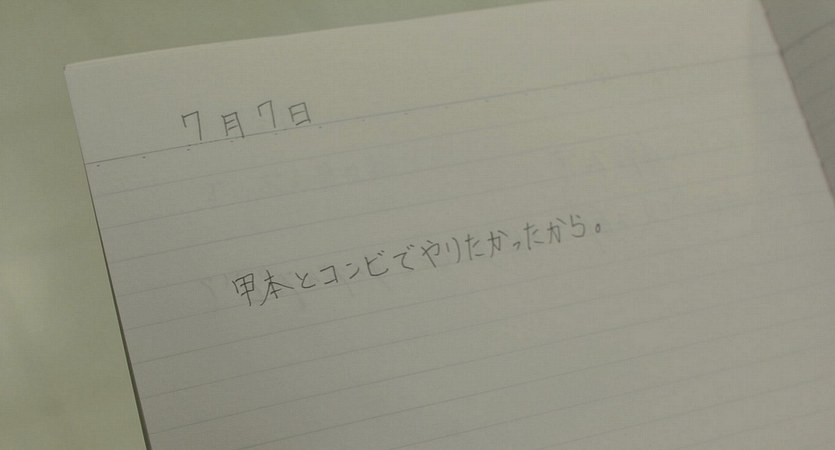 7月7日
甲本とコンビでやりたかったから。